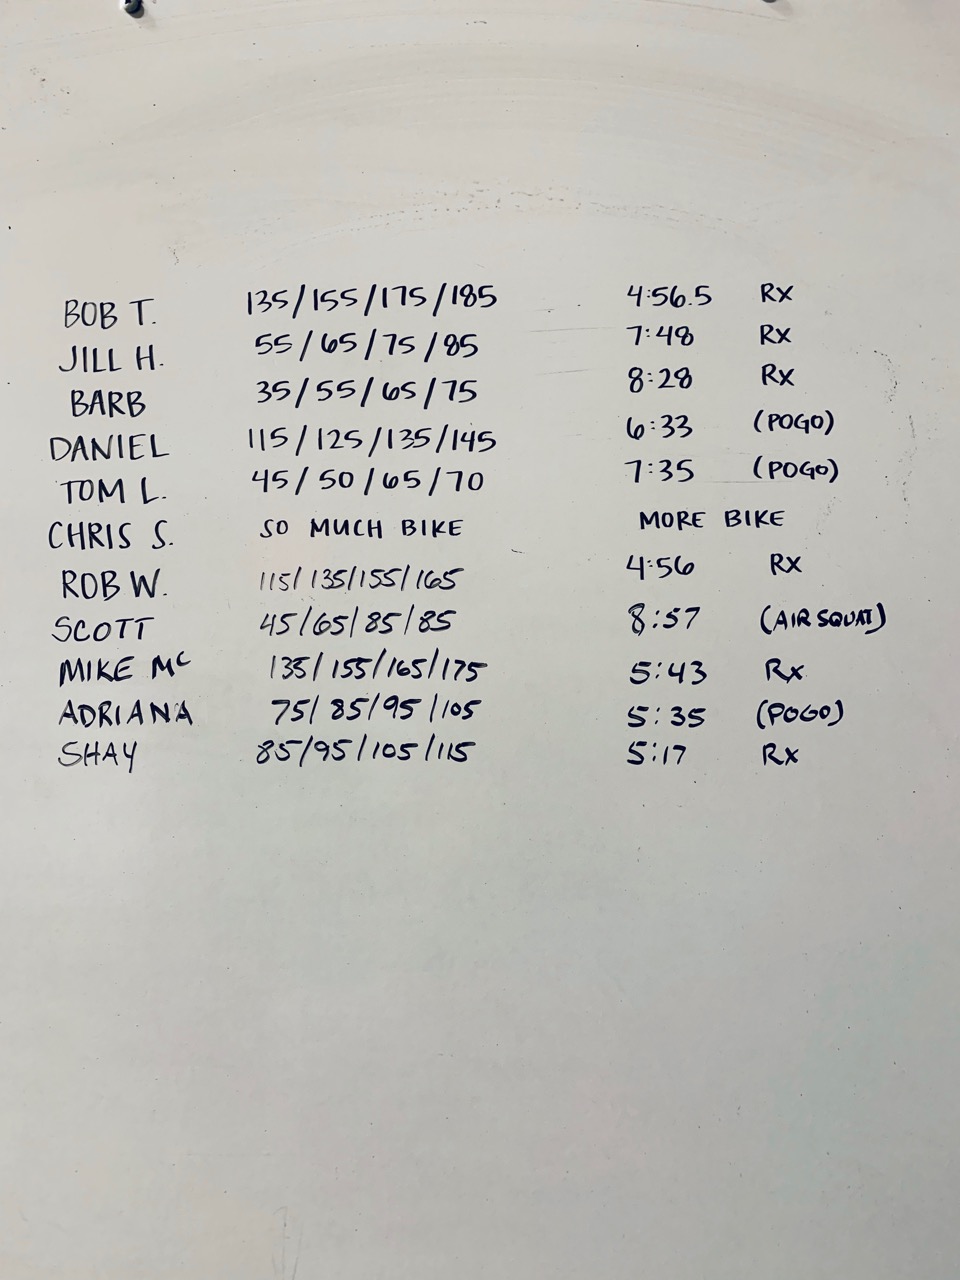 BOB T. 135/155/175/185 4:56.5 Rx
JILL H. 55/65/75/85 7:48 Rx
BARB 35/55/65/75 8:28 Rx
DANIEL 115/125/135/145 6:33 (POGO)
TOM L. 45/50/65/70 7:35 (POGO)
CHRIS S. SO MUCH BIKE MORE BIKE
ROB W. 115/135/155/165 4:56 Rx
SCOTT 45/65/85/85 8:57 (AIR SQUAT)
MIKE Mc 135/155/165/175 5:43 Rx
ADRIANA 75/85/95/105 5:35 (POGO)
SHAY 85/95/105/115 5:17 Rx